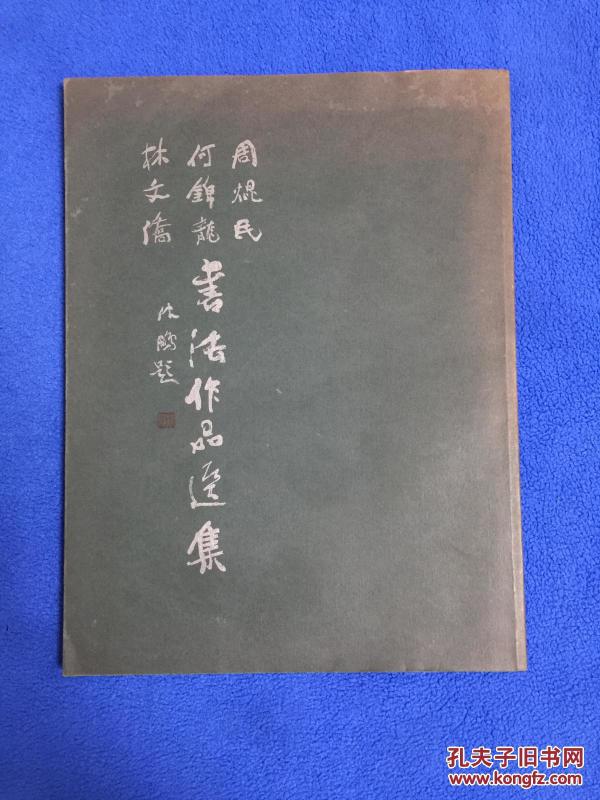 周焜民
何錦龍
林文僑
書法作品选集
沈鹏题
孔夫子旧书网
www.kongfz.com